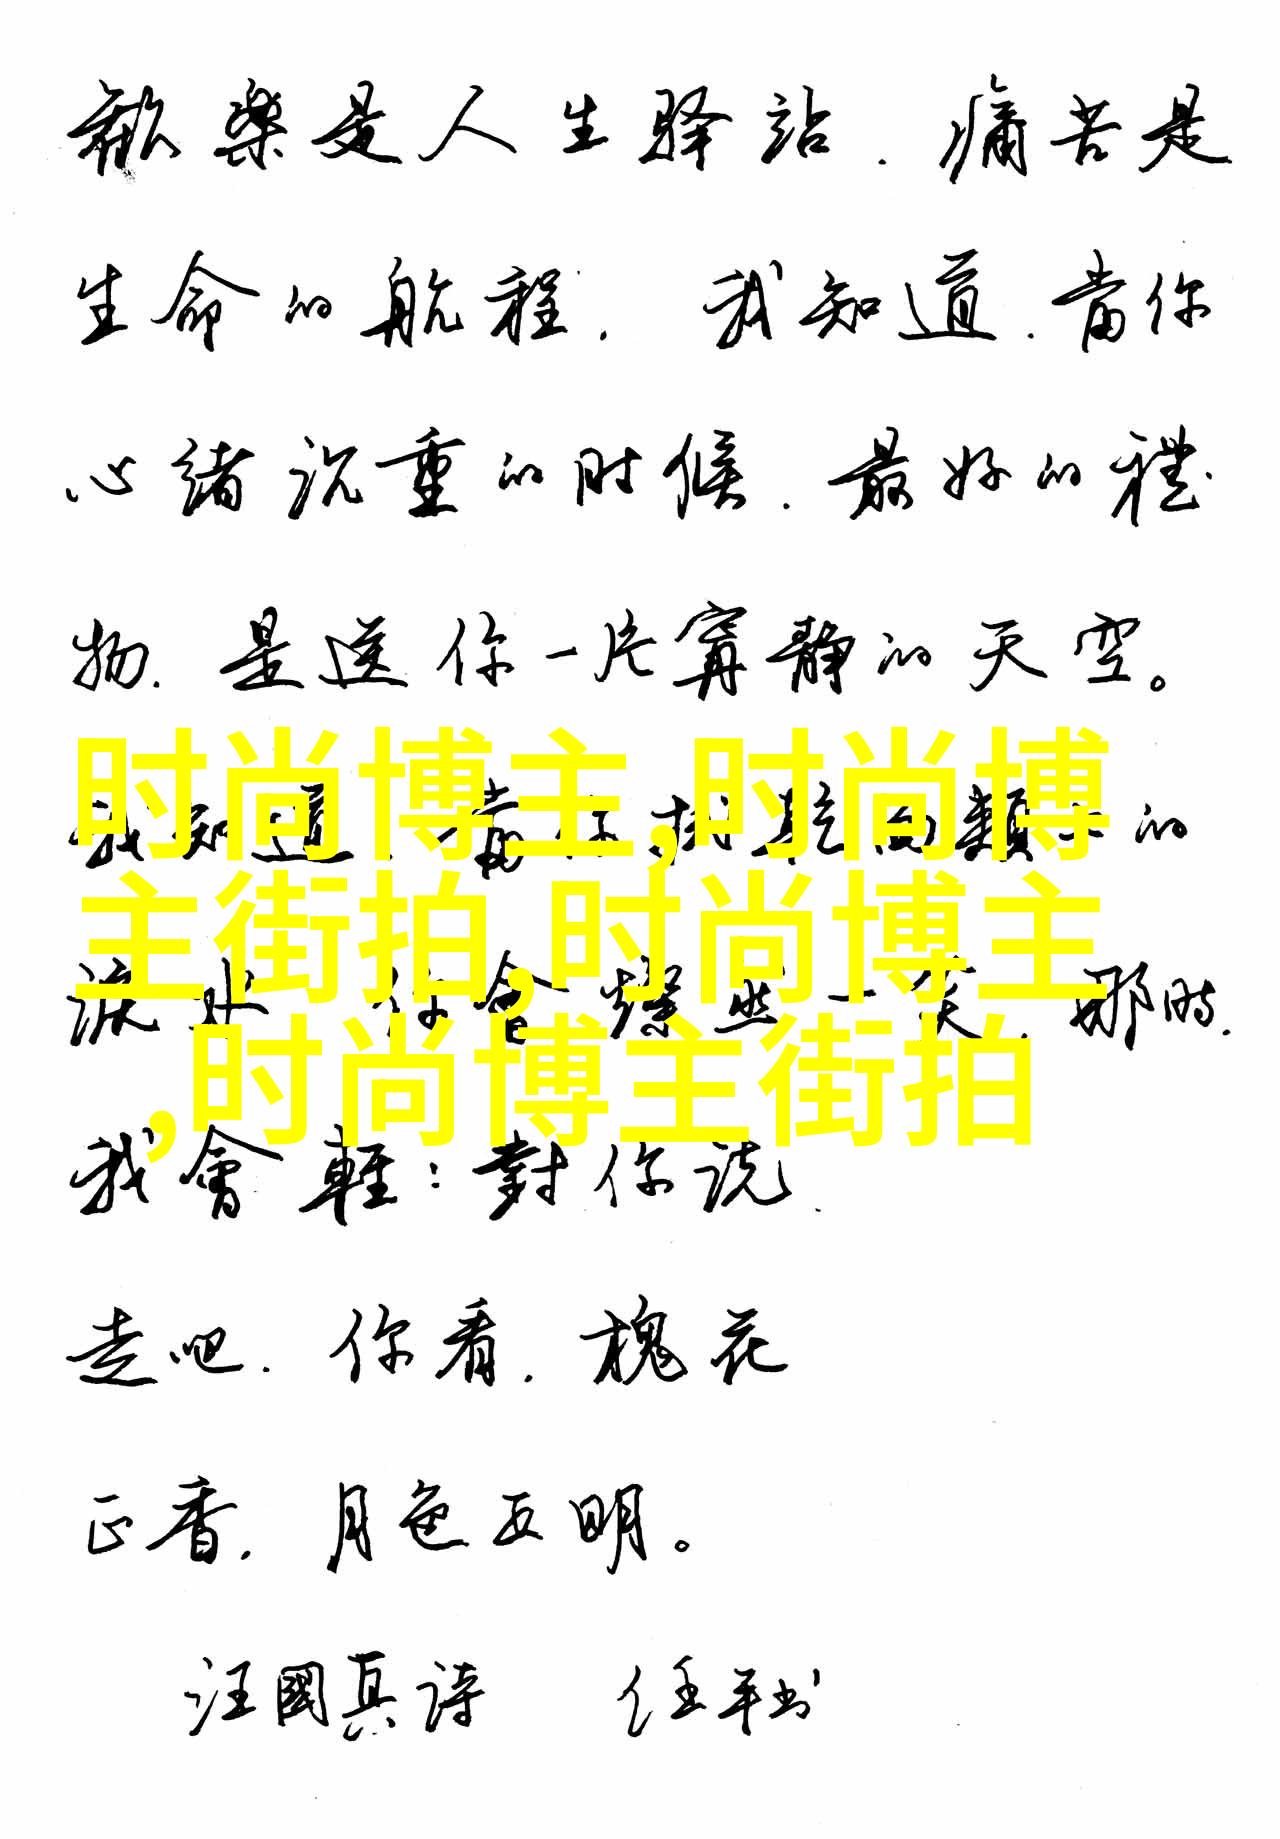 歡樂是人生驿站.痛苦是
生命的航程.我知道.當你
心緒沉重的时候.最好的禮
物.是送你一片寧静的天空。
时尚博主,时尚博
我知道.當你的
主街拍,时尚博主
淚水 你會燦然一笑.那時.
,时尚博主街拍
我會輕:對你说.
走吧.你看.槐花
正香.月色正明。
汪國真詩 任平书